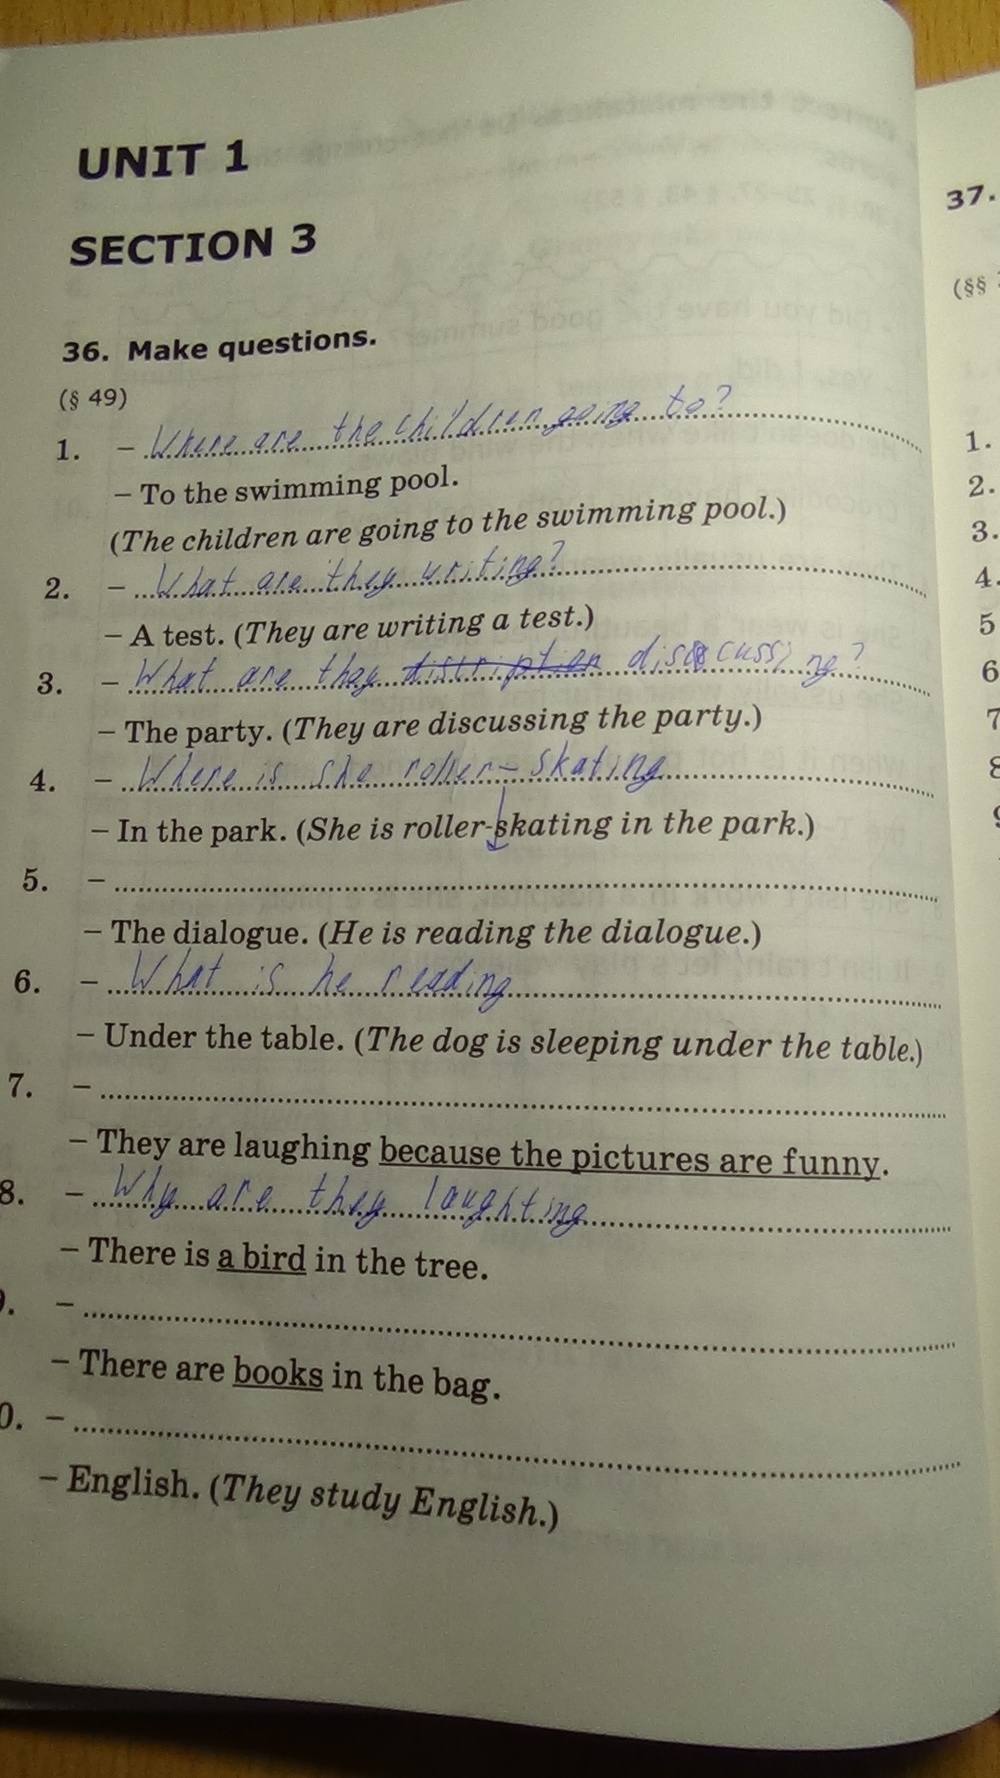 UNIT 1
SECTION 3
36. Make questions.
(§ 49)
1. – Where are the children going to?
– To the swimming pool.
(The children are going to the swimming pool.)
2. – What are they writing?
– A test. (They are writing a test.)
3. – What are they discussing?
– The party. (They are discussing the party.)
4. – Where is she roller-skating
– In the park. (She is roller-skating in the park.)
5. –
– The dialogue. (He is reading the dialogue.)
6. – What is he reading
– Under the table. (The dog is sleeping under the table.)
7. –
– They are laughing because the pictures are funny.
8. – Why are they laughting
– There is a bird in the tree.
. –
– There are books in the bag.
0. –
– English. (They study English.)
37.
(§§
1.
2.
3.
4.
5
6
7
8